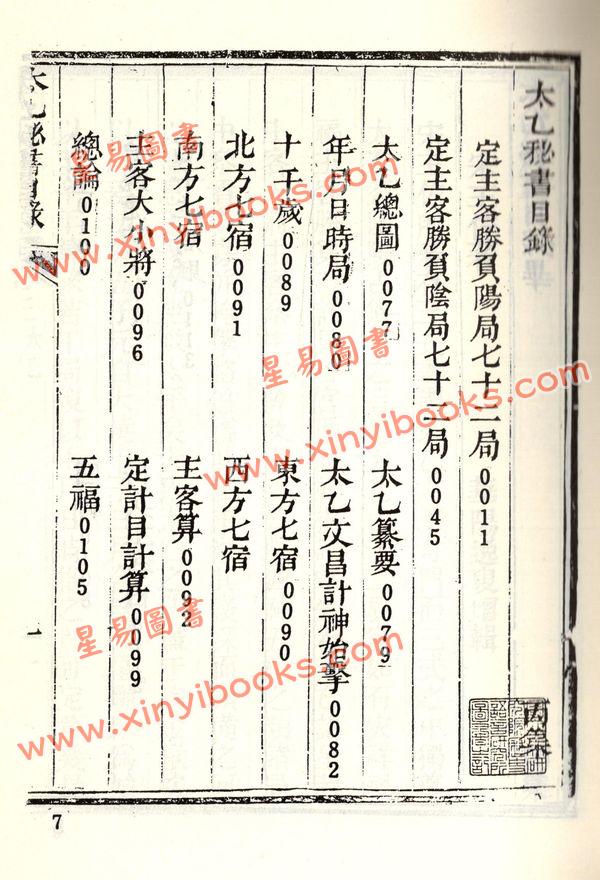 太乙秘書目錄
丙集
定主客勝負陽局七十二局0011
定主客勝負陰局七十二局0045
太乙總圖0077
太乙纂要0079
年月日時局0080
太乙文昌計神始擊0082
十干歲0089
東方七宿0090
北方七宿0091
西方七宿
南方七宿
主客算0092
主客大小將0096
定計目計算0099
總論0100
五福0105
太乙秘書目錄
一
7
星易圖書
www.xinyibooks.com
星易圖書
www.xinyibooks.com
星易圖書
www.xinyibooks.com